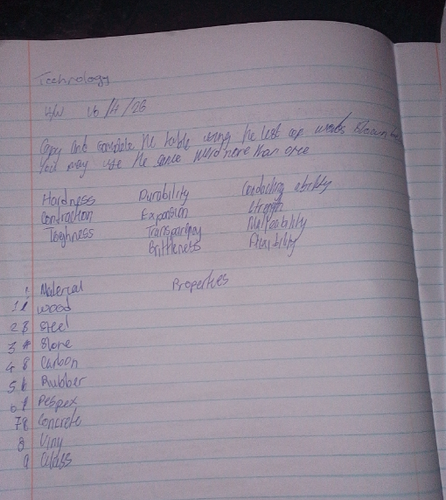 Technology
H/W 16/4/26
Copy and complete the table using the list of words Below
You may use the same word more than one
Hardness Durability Conducting ability
Contraction Expansion Strength
Toghness Transparency Malleability
Brittleness Flexibility
Material Properties
1 wood
2 Steel
3 Stone
4 Carbon
5 Rubber
6 Pespex
7 Concrete
8 Viny
9 Glass